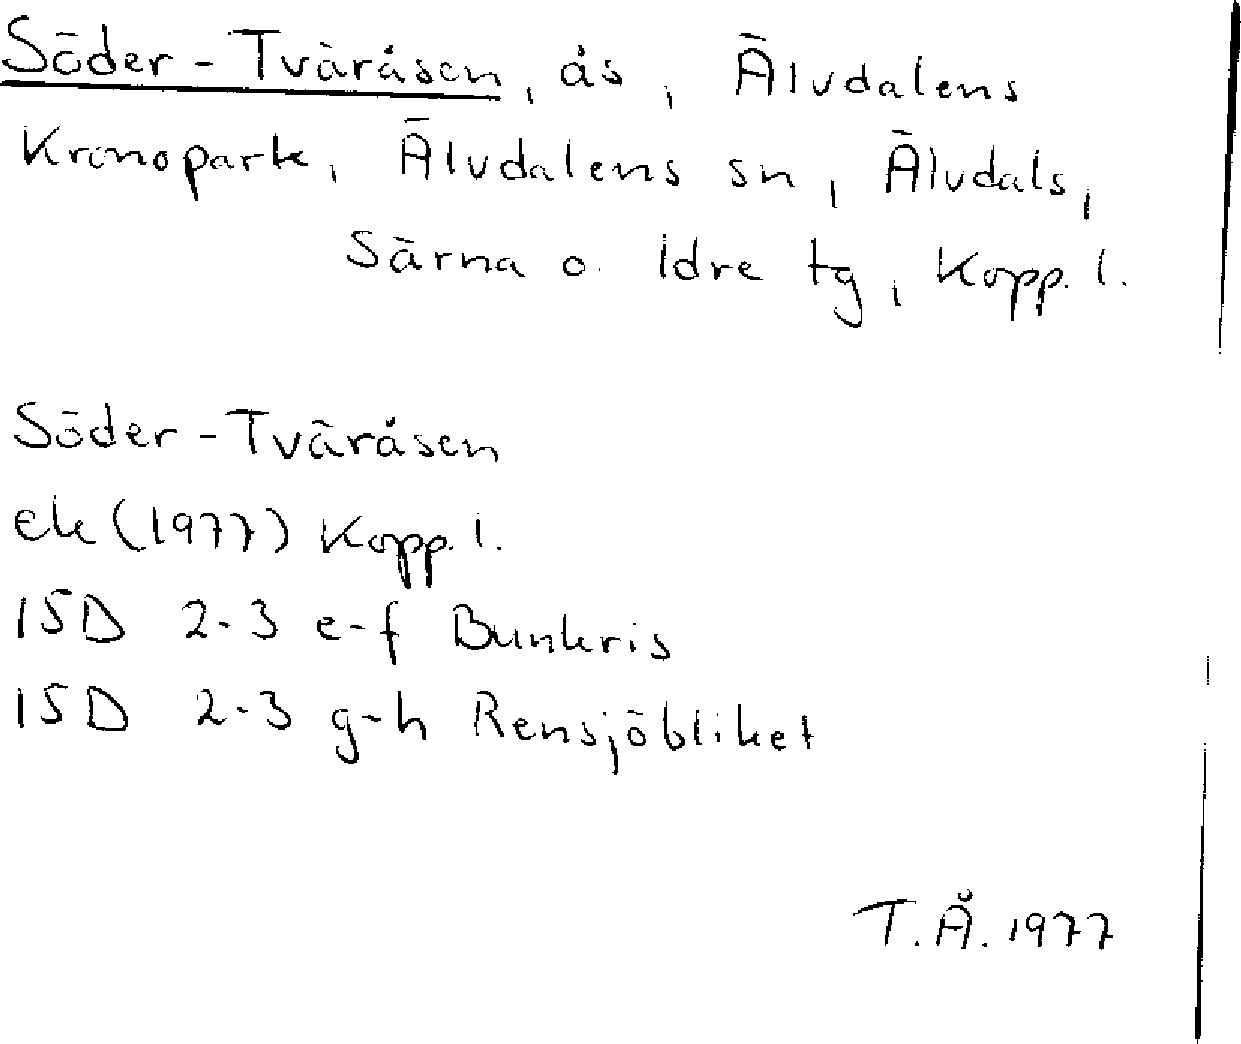 Söder-Tväråsen, ås, Älvdalens
Kronopark, Älvdalens sn, Älvdals,
Särna o. Idre tg, Kopp. l.
Söder-Tväråsen
ek (1977) Kopp. l.
15D 2-3 e-f Bunkris
15D 2-3 g-h Rensjöbliket
T.Å. 1977